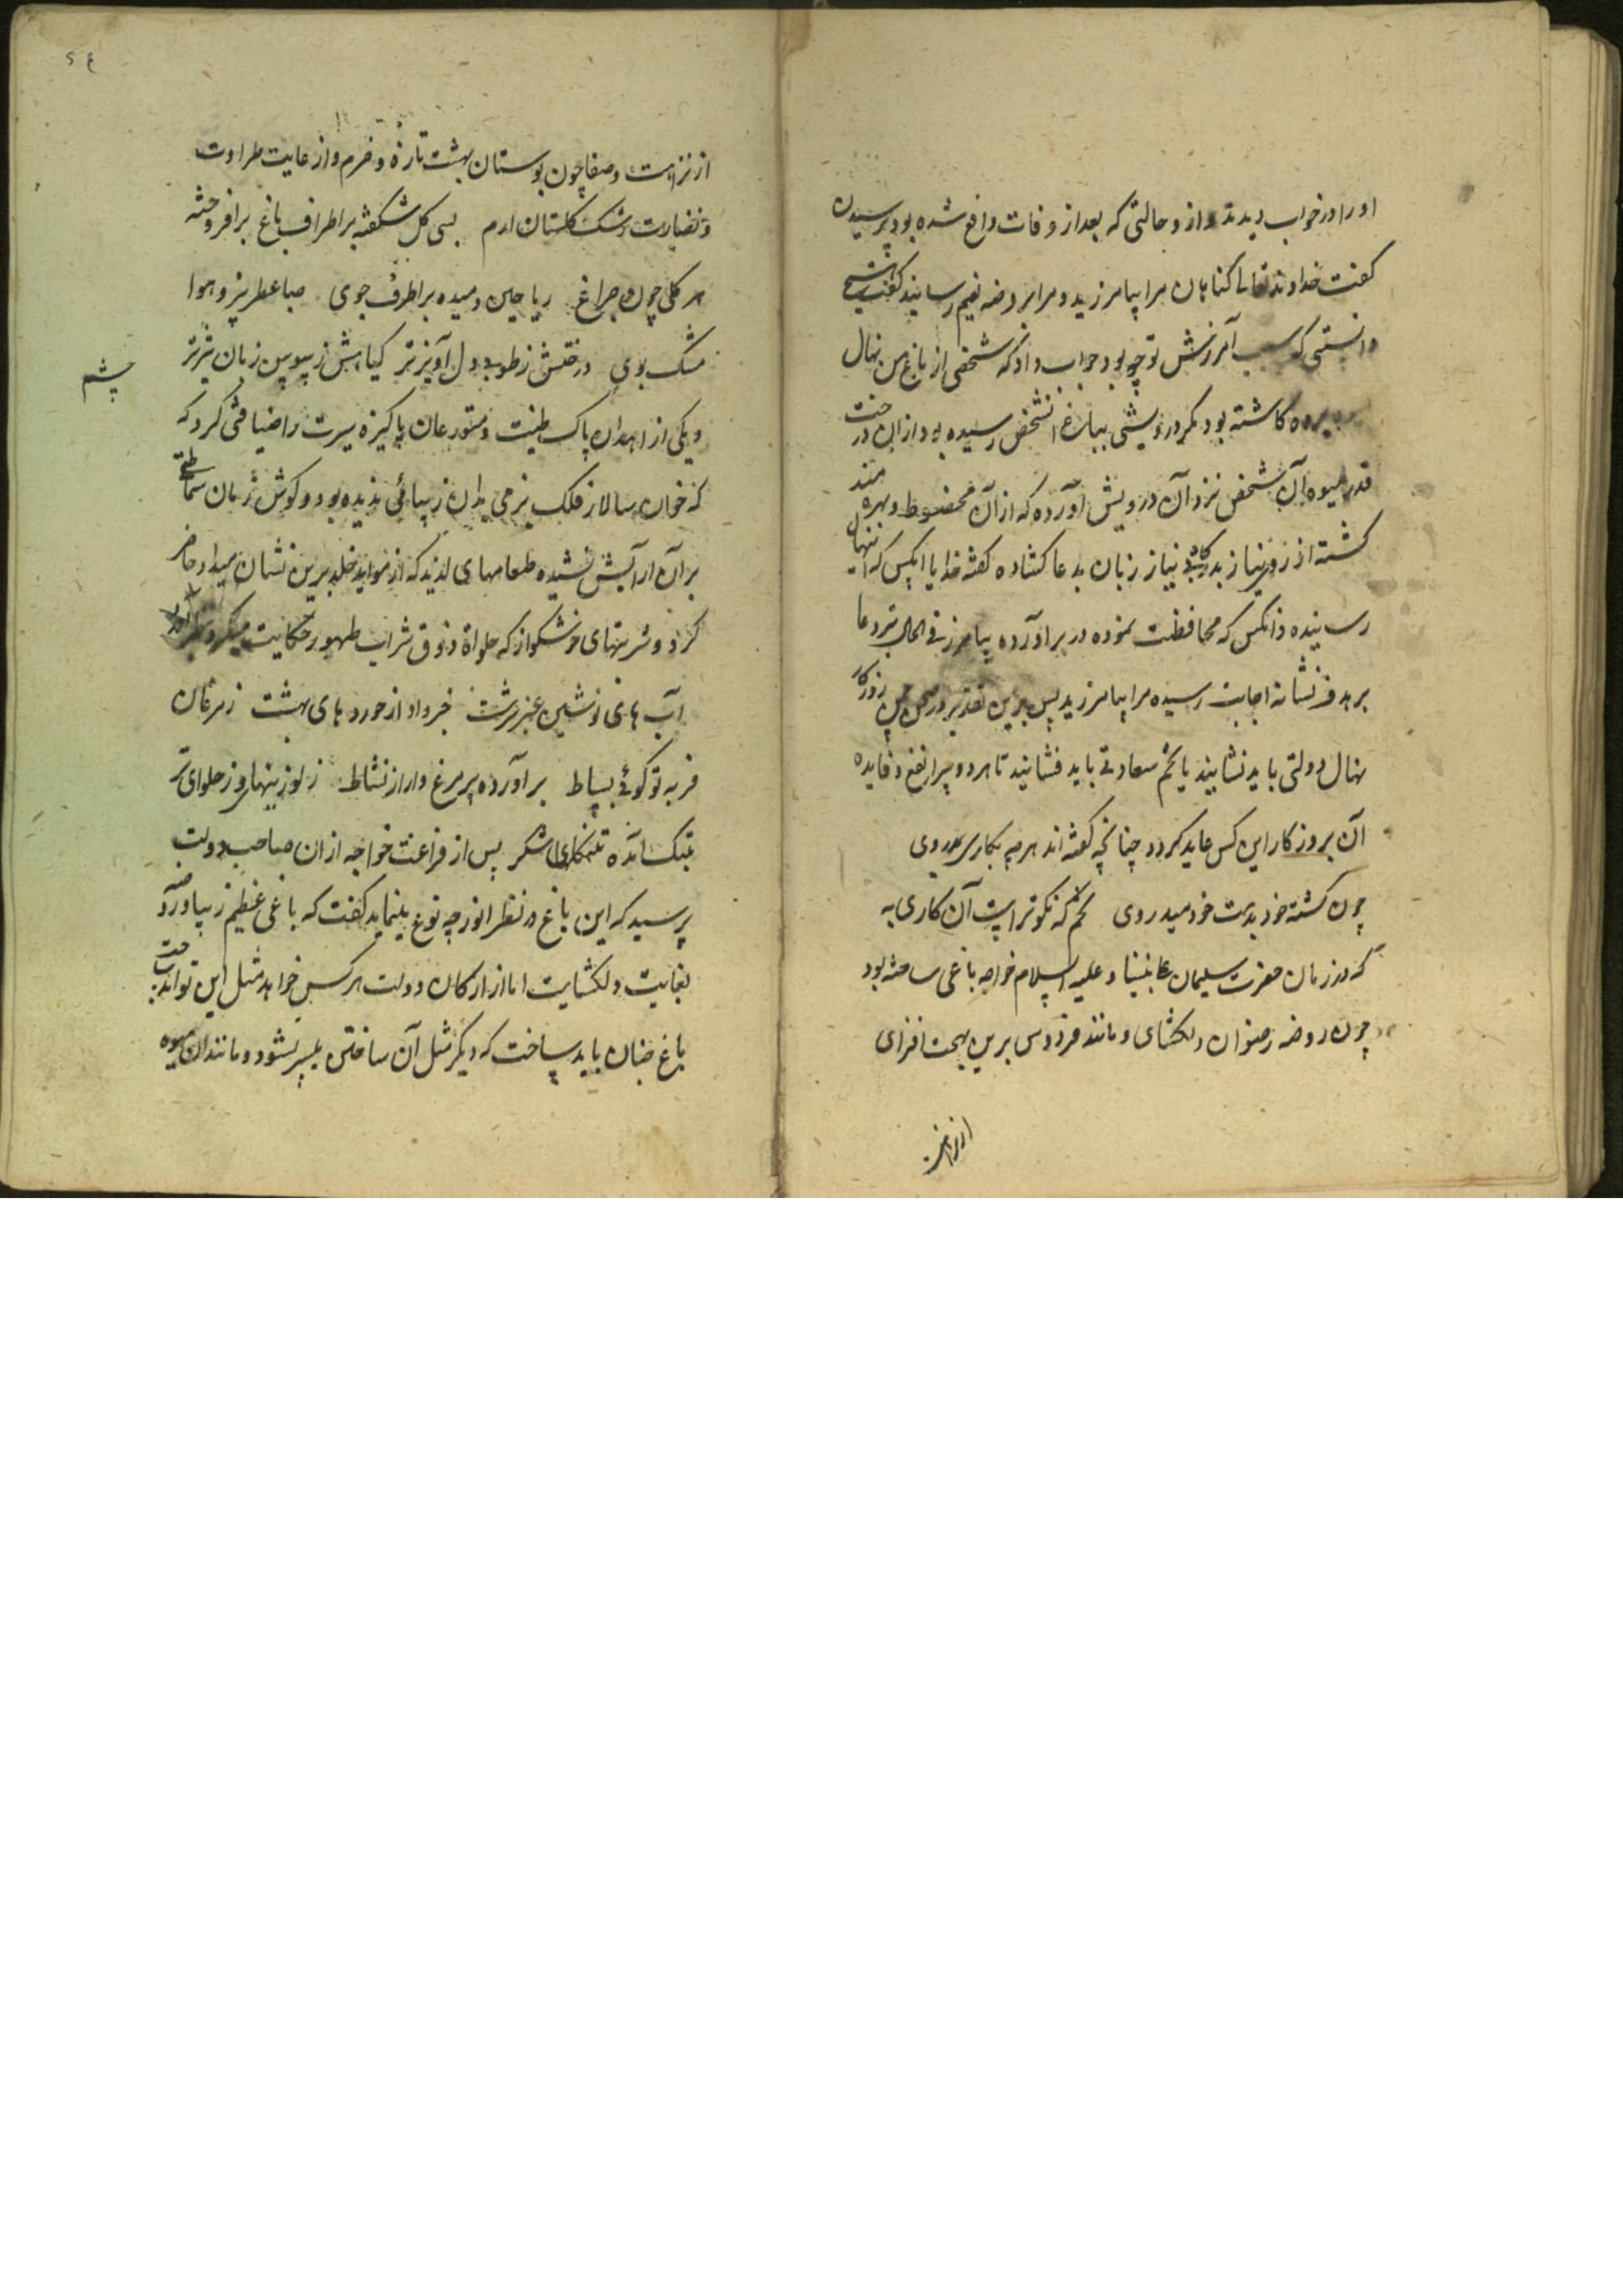 او را در خواب دیدند از و حالتی که بعد از وفات واقع شده بود پرسیدن
کفت خداوند تعالی کناهان مرا بیامرزید و مرا بروضه نعیم رسانید کفتند هیچ
دانستی که سبب آمرزش تو چه بود جواب داد که شخصی از باغ من نهال
برده کاشته بود مکر درویشی بباغ آنشخص رسیده بود از ان درخت
قدر میوه آن شخص نزد آن درویش آورده که از آن محضوظ و بهره مند
کشته از روی نیاز بدرکاه بی نیاز زبان بدعا کشاده کفته خدایا انکس که این نهال
رسانیده و انکس که محافظت نموده در بر آورده بیامرز فی الحال تیر دعا
بر هدف نشانه اجابت رسیده مرا بیامرزید پس برین تقدیر در چمن روزکار
نهال دولتی باید نشانید یا تخم سعادتی باید فشانید تا هر دو سرا نفع و فایده
آن بروزکار این کس عاید کردد چنانچه کفته اند هر چه بکاری بدروی
چون کشته خود بدست خود میدروی تخم که نکوتر است آن کاری به
که در زمان حضرت سلیمان علی نبینا و علیه السلام خواجه باغی ساخته بود
چون روضه رضوان دلکشای و مانند فردوس برین بهجت افزای
از نزاهت
ع ۲
از نزاهت و صفا چون بوستان بهشت تازه و خرم و از غایت طراوت
و نضارت رشک کلستان ارم بسی کل شکفته بر اطراف باغ برافروخته
هر کلی چون چراغ ریاحین دمیده بر اطرف جوی صبا عطر بیز و هوا
مشک بوی درختش ز طوبی دل آویز تر کیاهش ز سوسن زبان تیز تر
چشم
و یکی از اهدان پاک طینت و متورعان پاکیزه سیرت را ضیافتی کرد که
که خوان سالار فلک بزمی بدان زیبائی ندیده بود و کوش زمان سماطی
بر آن آرایش نشنیده طعامهای لذیذ که از مواید خلد برین نشان میداد حاضر
کرد و شربتهای خوشکوار که حلواة ذوق شراب طهور حکایت میکرد
آب های نوشین عنبر سرشت خبر داد از خورد های بهشت ز مرغان
فربه تو کوئی بساط بر آورده پر مرغ وار از نشاط ز لوزینهای و ز حلوای تر
بتنک آمده تنکهای شکر پس از فراغت خواجه از ان صاحب دولت
پرسید که این باغ در نظر انور چه نوع مینماید کفت که باغی عظیم زیبا و روضه
بغایت دلکشایت اما از ارکان دولت هر کس خواهد مثل این تواند ساخت
باغ چنان باید ساخت که دیکر مثل آن ساختن میسر نشود و مانند ان میوه